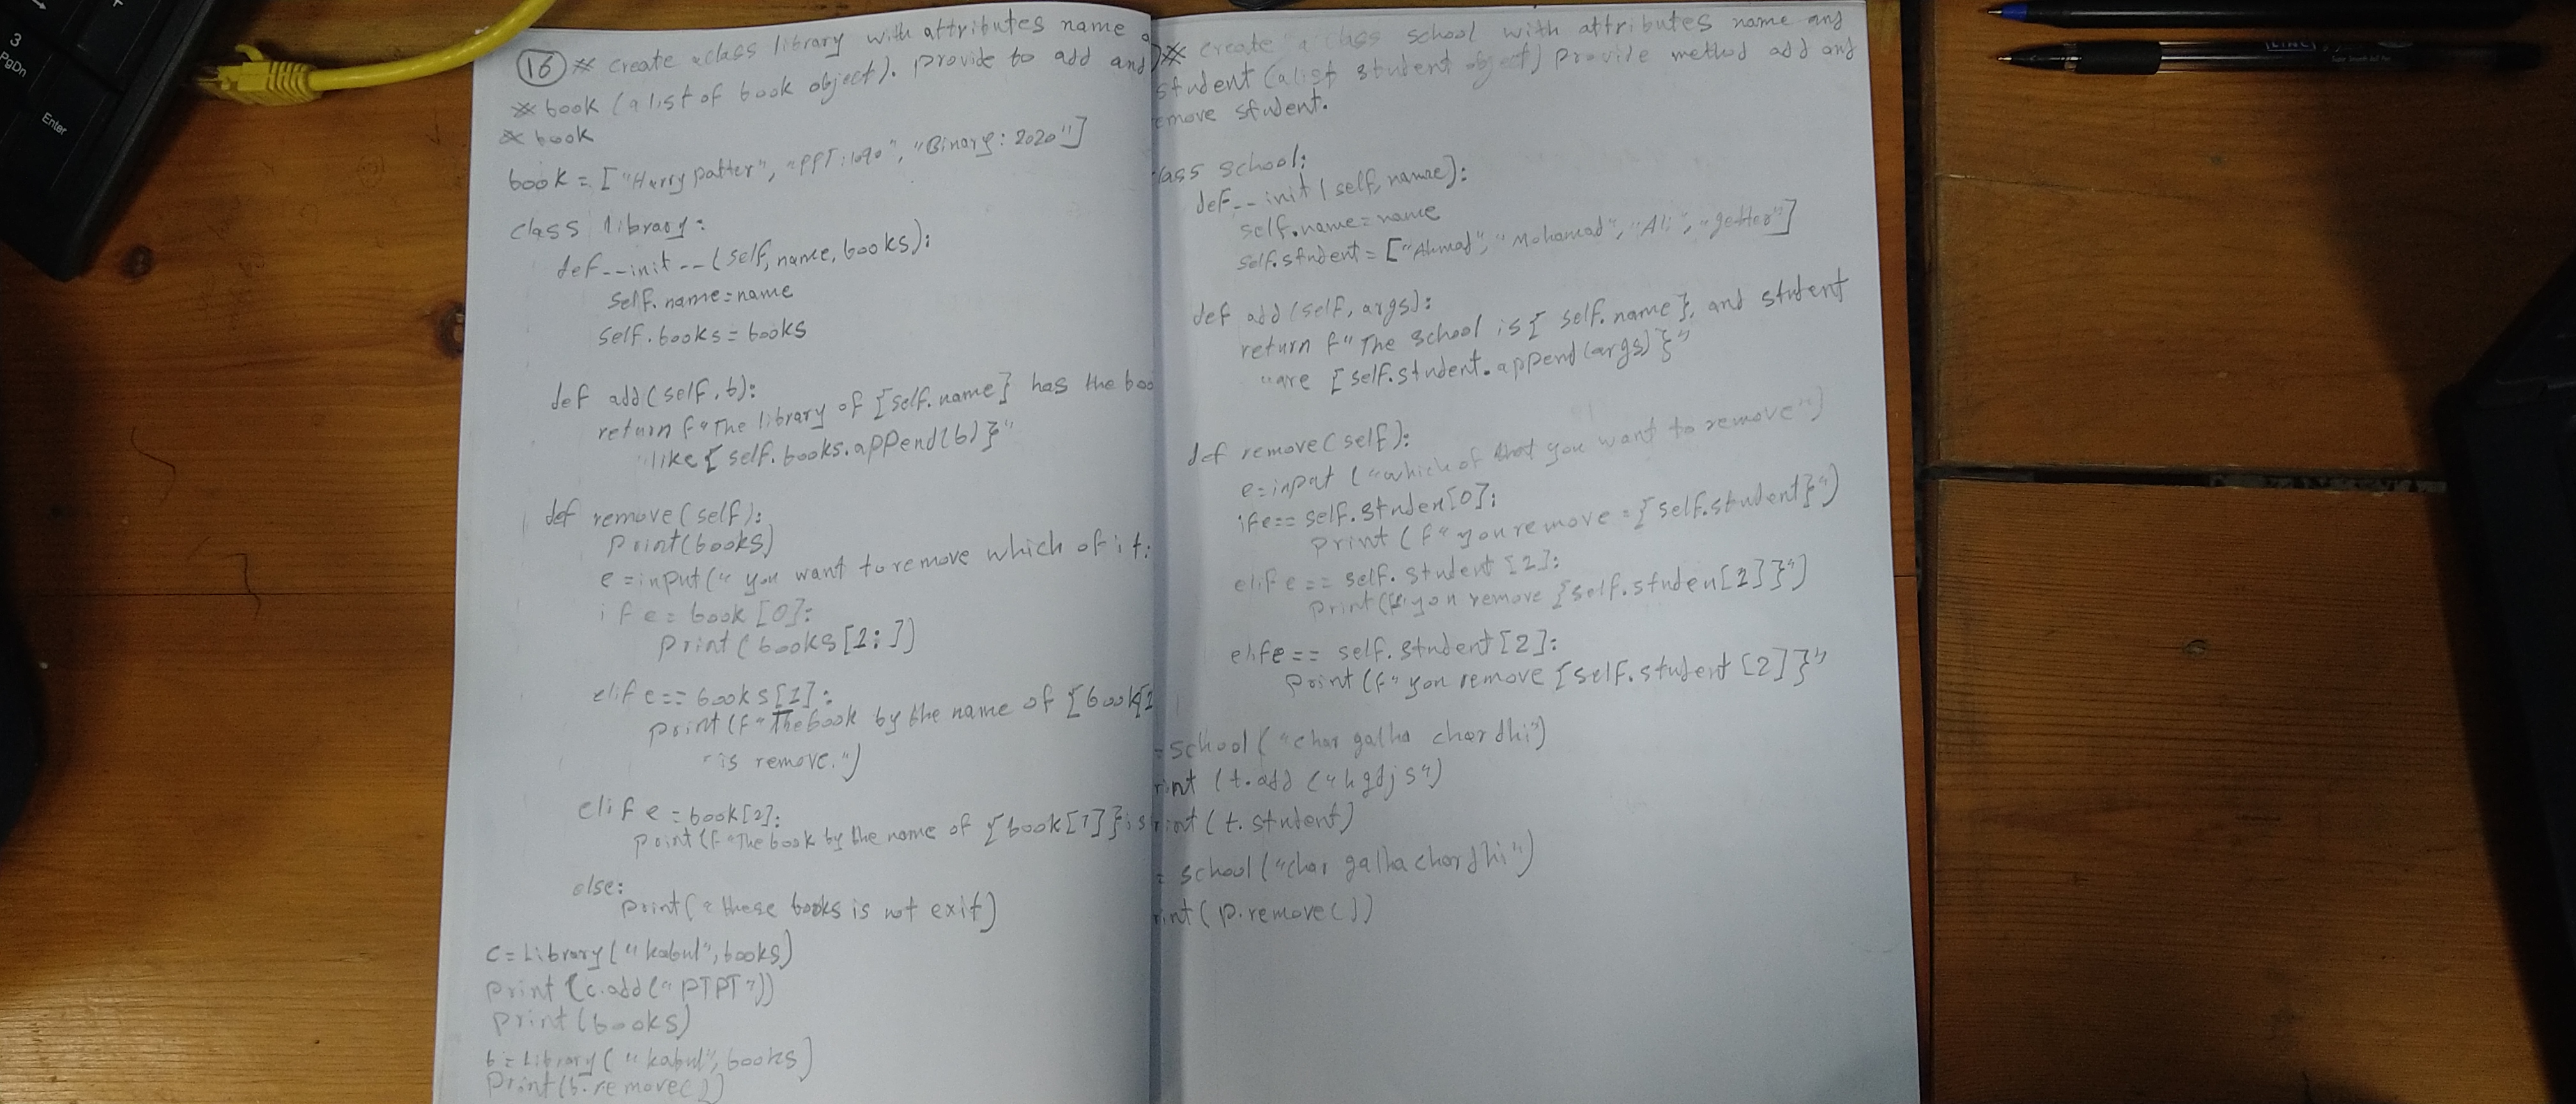 (16) * create a class library with attributes name a
* book (a list of book object). provide to add and
* book
book = ["Harry potter", "PPT:1090", "Binary: 2020"]
class library:
def -init-- (self, name, books):
self.name=name
self.books=books
def add(self, b):
return f"The library of {self.name} has the boo
"like {self.books.append(b)}"
def remove(self):
print(books)
e=input(" you want to remove which of it:
if e=book[0]:
print(books[2:])
elif e== book[1]:
print(f"The book by the name of {book[1
"is remove.")
elif e=book[2]:
print(f"The book by the name of {book[1]} is
else:
print(these books is not exit)
c=Library("kabul",books)
print(c.add("PTPT"))
print(books)
b=Library("kabul",books)
print(b.remove())
)* create a class school with attributes name any
student (a list student object) provile method add any
emove student.
lass school:
def--init(self,name):
self.name=name
self.student=["Ahmad","Mohamad","Ali",
def add(self, args):
return f"The school is{ self.name}, and student
"are {self.student.append(args)}"
def remove(self):
e=input("which of that you want to remove")
if e== self.studen[0]:
print(f"you remove={self.student}")
elif e== self.student[2]:
print(f"you remove {self.studen[2]}")
elif e== self.student[2]:
print(f"you remove {self.student[2]}"
=school("char galha chardhi")
rint(t.add("hgdjs")
rint(t.student)
= school("char galhachardhi")
rint(p.remove())
Enter
3
PgDn